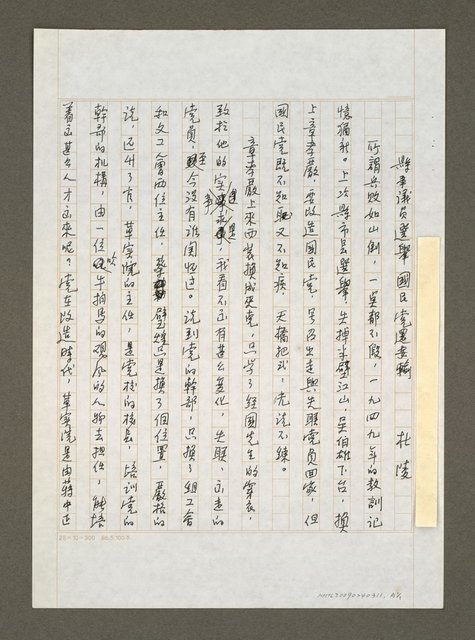 縣市議員選舉 國民黨還要輸 杜陵
所謂兵敗如山倒，一點都不假，一九四九年的教訓記
憶猶新。上次縣市長選舉失掉半壁江山，吳伯雄下台，換
上章孝嚴，要改造國民黨，號召出走與失聯黨員回家，但
國民黨既不知恥又不知疾，天橋把式，光說不練。
章孝嚴上來西裝換成夾克，只學了經國先生的穿衣，
致於他的實事求是，我看不透有甚麼變化，失聯，出走的
黨員，至今沒有誰關懷過。說到黨的幹部，只換了組工會
和文工會兩位主任，只是換了個位置，嚴格的
說，還算了有，革實院的主任，是黨校的校長，培訓黨的
幹部的機構，由一位吹牛拍馬的人物去担任，能培
養出甚么人才出來呢？黨在改造時代，革實院是由蔣中正
25×10=300
NMTL20090240311